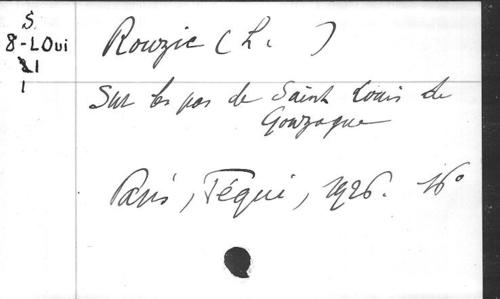 S.
8-LOui
21
1
Rouzic (L. )
Sur les pas de Saint Louis de
Gonzague
Paris, Téqui, 1926. 16°